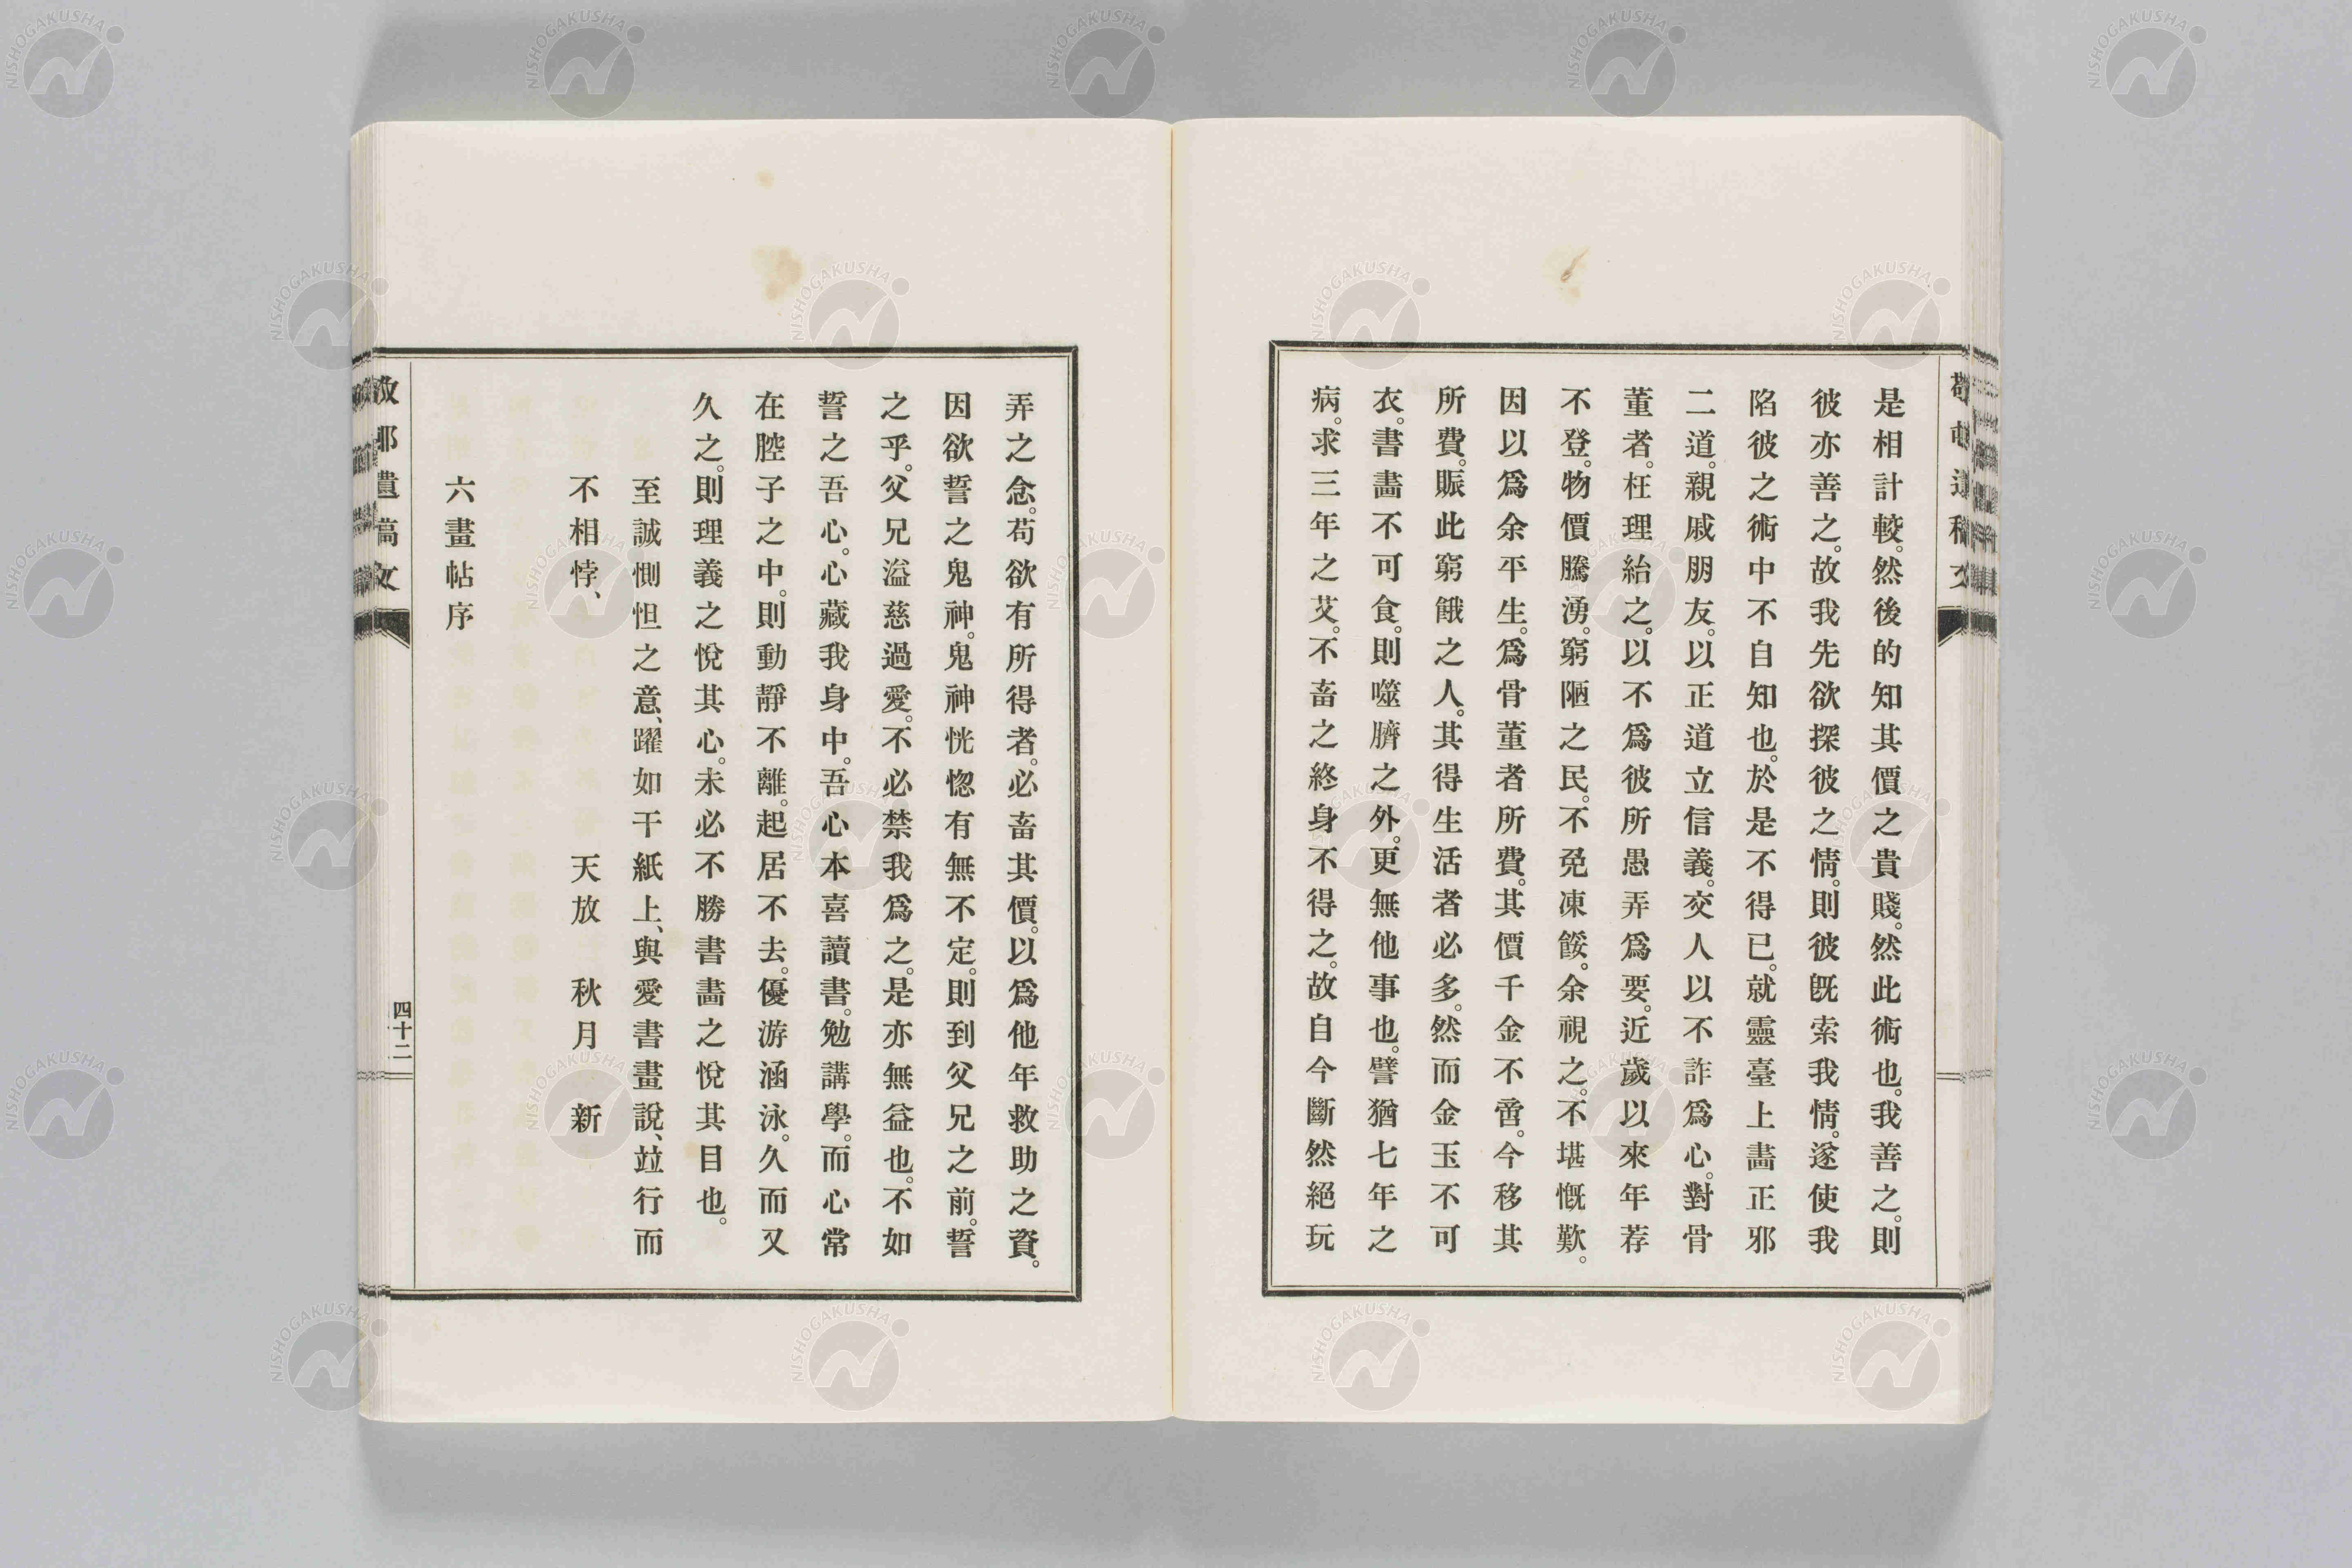 是相計較。然後的知其價之貴賤。然此術也。我善之。則
彼亦善之。故我先欲探彼之情。則彼既索我情。遂使我
陷彼之術中不自知也。於是不得已。就靈臺上畫正邪
二道。親戚朋友。以正道立信義。交人以不詐爲心。對骨
董者。枉理紿之。以不爲彼所愚弄爲要。近歲以來年荐
不登。物價騰湧。窮陋之民。不免凍餒。余視之。不堪慨歎。
因以爲余平生。爲骨董者所費。其價千金不啻。今移其
所費。賑此窮餓之人。其得生活者必多。然而金玉不可
衣。書畫不可食。則噬臍之外。更無他事也。譬猶七年之
病。求三年之艾。不畜之終身不得之。故自今斷然絕玩
弄之念。苟欲有所得者。必畜其價。以爲他年救助之資。
因欲誓之鬼神。鬼神恍惚有無不定。則到父兄之前。誓
之乎。父兄溢慈過愛。不必禁我爲之。是亦無益也。不如
誓之吾心。心藏我身中。吾心本喜讀書。勉講學。而心常
在腔子之中。則動靜不離。起居不去。優游涵泳。久而又
久之。則理義之悅其心。未必不勝書畫之悅其目也。
至誠惻怛之意、躍如干紙上、與愛書畫說、竝行而
不相悖、 天放 秋月 新
六畫帖序
四十二
NISHOGAKUSHA